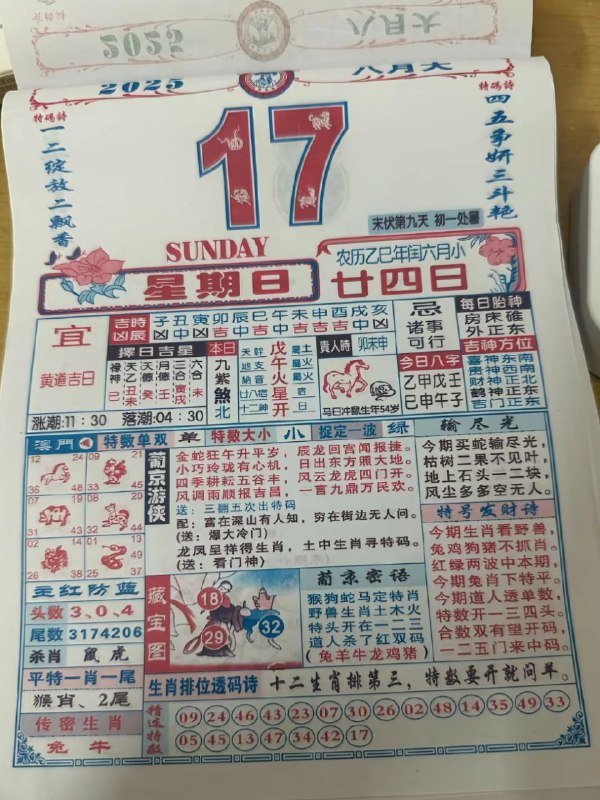 2025
大月八
2025
八月大
特碼詩
特碼詩
一二綻放二飄香
四五争妍三斗艳
17
末伏第九天 初一处暑
SUNDAY
星期日
农历乙巳年闰六月小
廿四日
宜
黄道吉日
吉時凶辰
子丑寅卯辰巳午未申酉戌亥
擇日吉星
本日
九紫煞北
天幹
地支
納音
廿八宿
十二神
戊午火星开
貴人時
卯未申
马日冲鼠生年54岁
忌
诸事可行
每日胎神
房床碓
外正东
吉神方位
喜神东南
贵神西北
财神正北
鹤神正东
吉门正东
今日八字
乙甲戊壬
巳申午子
涨潮:11:30 落潮:04:30
澳門
特数单双
单
特数大小
小
捉定一波
绿
输尽光
12 24
36 48
09 21
33 45
07 19
31 43
08 20
32 44
02 14
26 38
01 13
25 37
葡京游侠
金蛇狂午升平岁，辰龙回宫闻报捷。
小巧玲珑有心机，日出东方照大地。
四季耕耘五谷丰，风云龙虎四门开。
风调雨顺报吉昌，一言九鼎万民欢。
送：三翻五次出特码
配：富在深山有人知，穷在街边无人问。
(送：爆大冷门)
龙凤呈祥得生肖，土中生肖寻特码。
(送：看门神)
今期买蛇输尽光，
枯树二果不见叶，
地上石头一二块，
风尘多多空无人。
特号发财诗
今期生肖看野兽，
兔鸡狗猪不抓肖。
红绿两波中本期，
今期兔肖下特平。
今期道人透单数，
特数开一三四头。
合数双有望开码，
一二五门来中码。
主红防蓝
头数3、0、4
尾数3174206
杀肖 鼠虎
平特一肖一尾
猴肖、2尾
传密生肖
兔牛
藏宝图
18
29
32
葡京密语
猴狗蛇马定特肖
野兽生肖土木火
特头开在一二三
道人杀了红双码
(兔羊牛龙鸡猪)
生肖排位透码诗
十二生肖排第三，特数要开就问羊。
精选特数
09 24 46 43 23 07 30 26 02 48 14 35 49 33
05 45 13 47 34 42 17